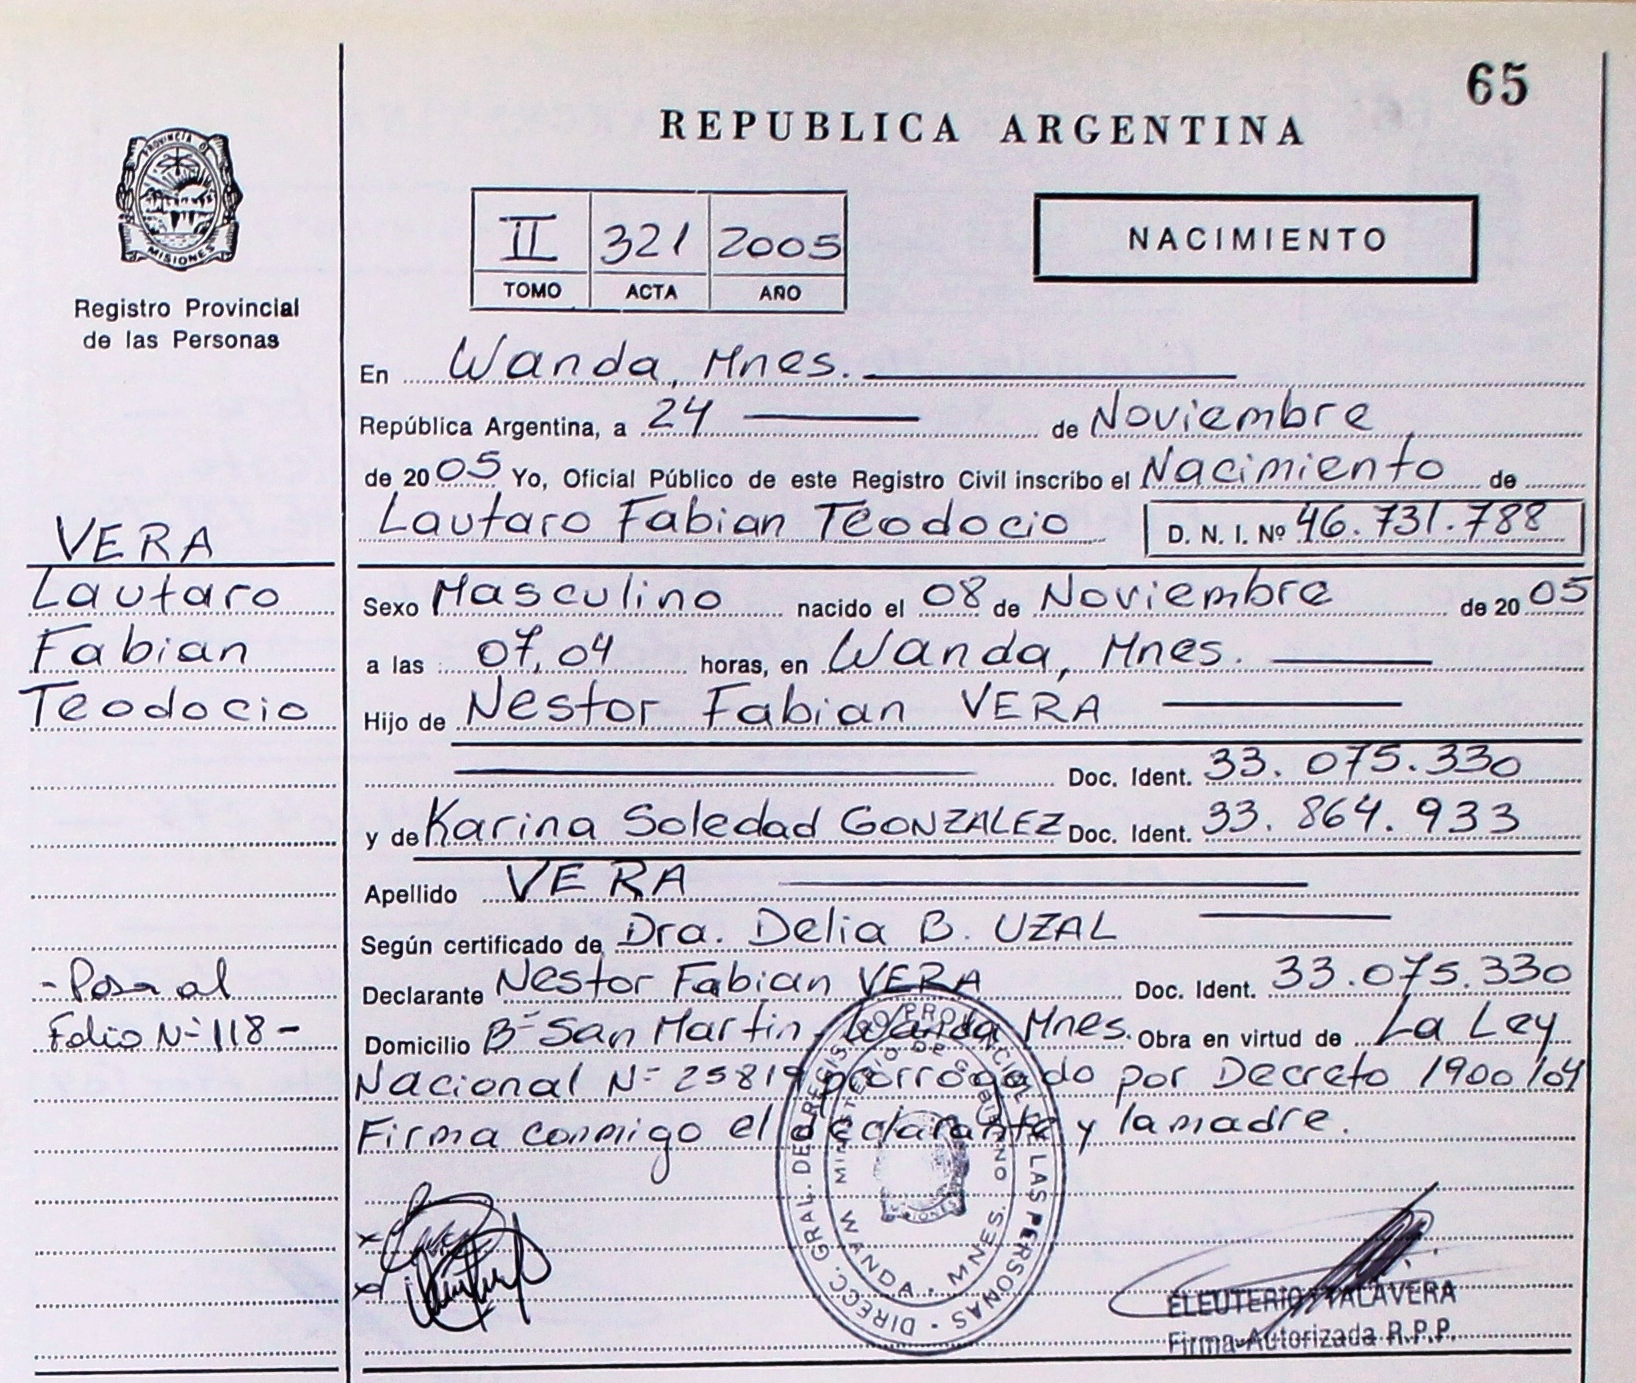 65
REPUBLICA ARGENTINA
PROVINCIA DE
MISIONES
Registro Provincial
de las Personas
II 321 2005
TOMO ACTA AÑO
NACIMIENTO
En Wanda, Mnes.
República Argentina, a 24 de Noviembre
de 2005 Yo, Oficial Público de este Registro Civil inscribo el Nacimiento de
Lautaro Fabian Teodocio D. N. I. Nº 46.731.788
VERA
Lautaro
Fabian
Teodocio
Sexo Masculino nacido el 08 de Noviembre de 2005
a las 07,04 horas, en Wanda, Mnes.
Hijo de Nestor Fabian VERA
Doc. Ident. 33.075.330
y de Karina Soledad GONZALEZ Doc. Ident. 33.864.933
Apellido VERA
Según certificado de Dra. Delia B. UZAL
Declarante Nestor Fabian VERA Doc. Ident. 33.075.330
- Pasa al
Folio Nº 118 -
Domicilio Bº San Martin - Wanda Mnes. Obra en virtud de La Ley
Nacional Nº 25819 prorrogado por Decreto 1900/04
Firma conmigo el declarante y la madre.
DIRECC. GRAL. DEL REGISTRO PROVINCIAL DE LAS PERSONAS
MINISTERIO DE GOBIERNO
MISIONES
WANDA - MNES.
ELEUTERIO TALAVERA
Firma Autorizada R.P.P.